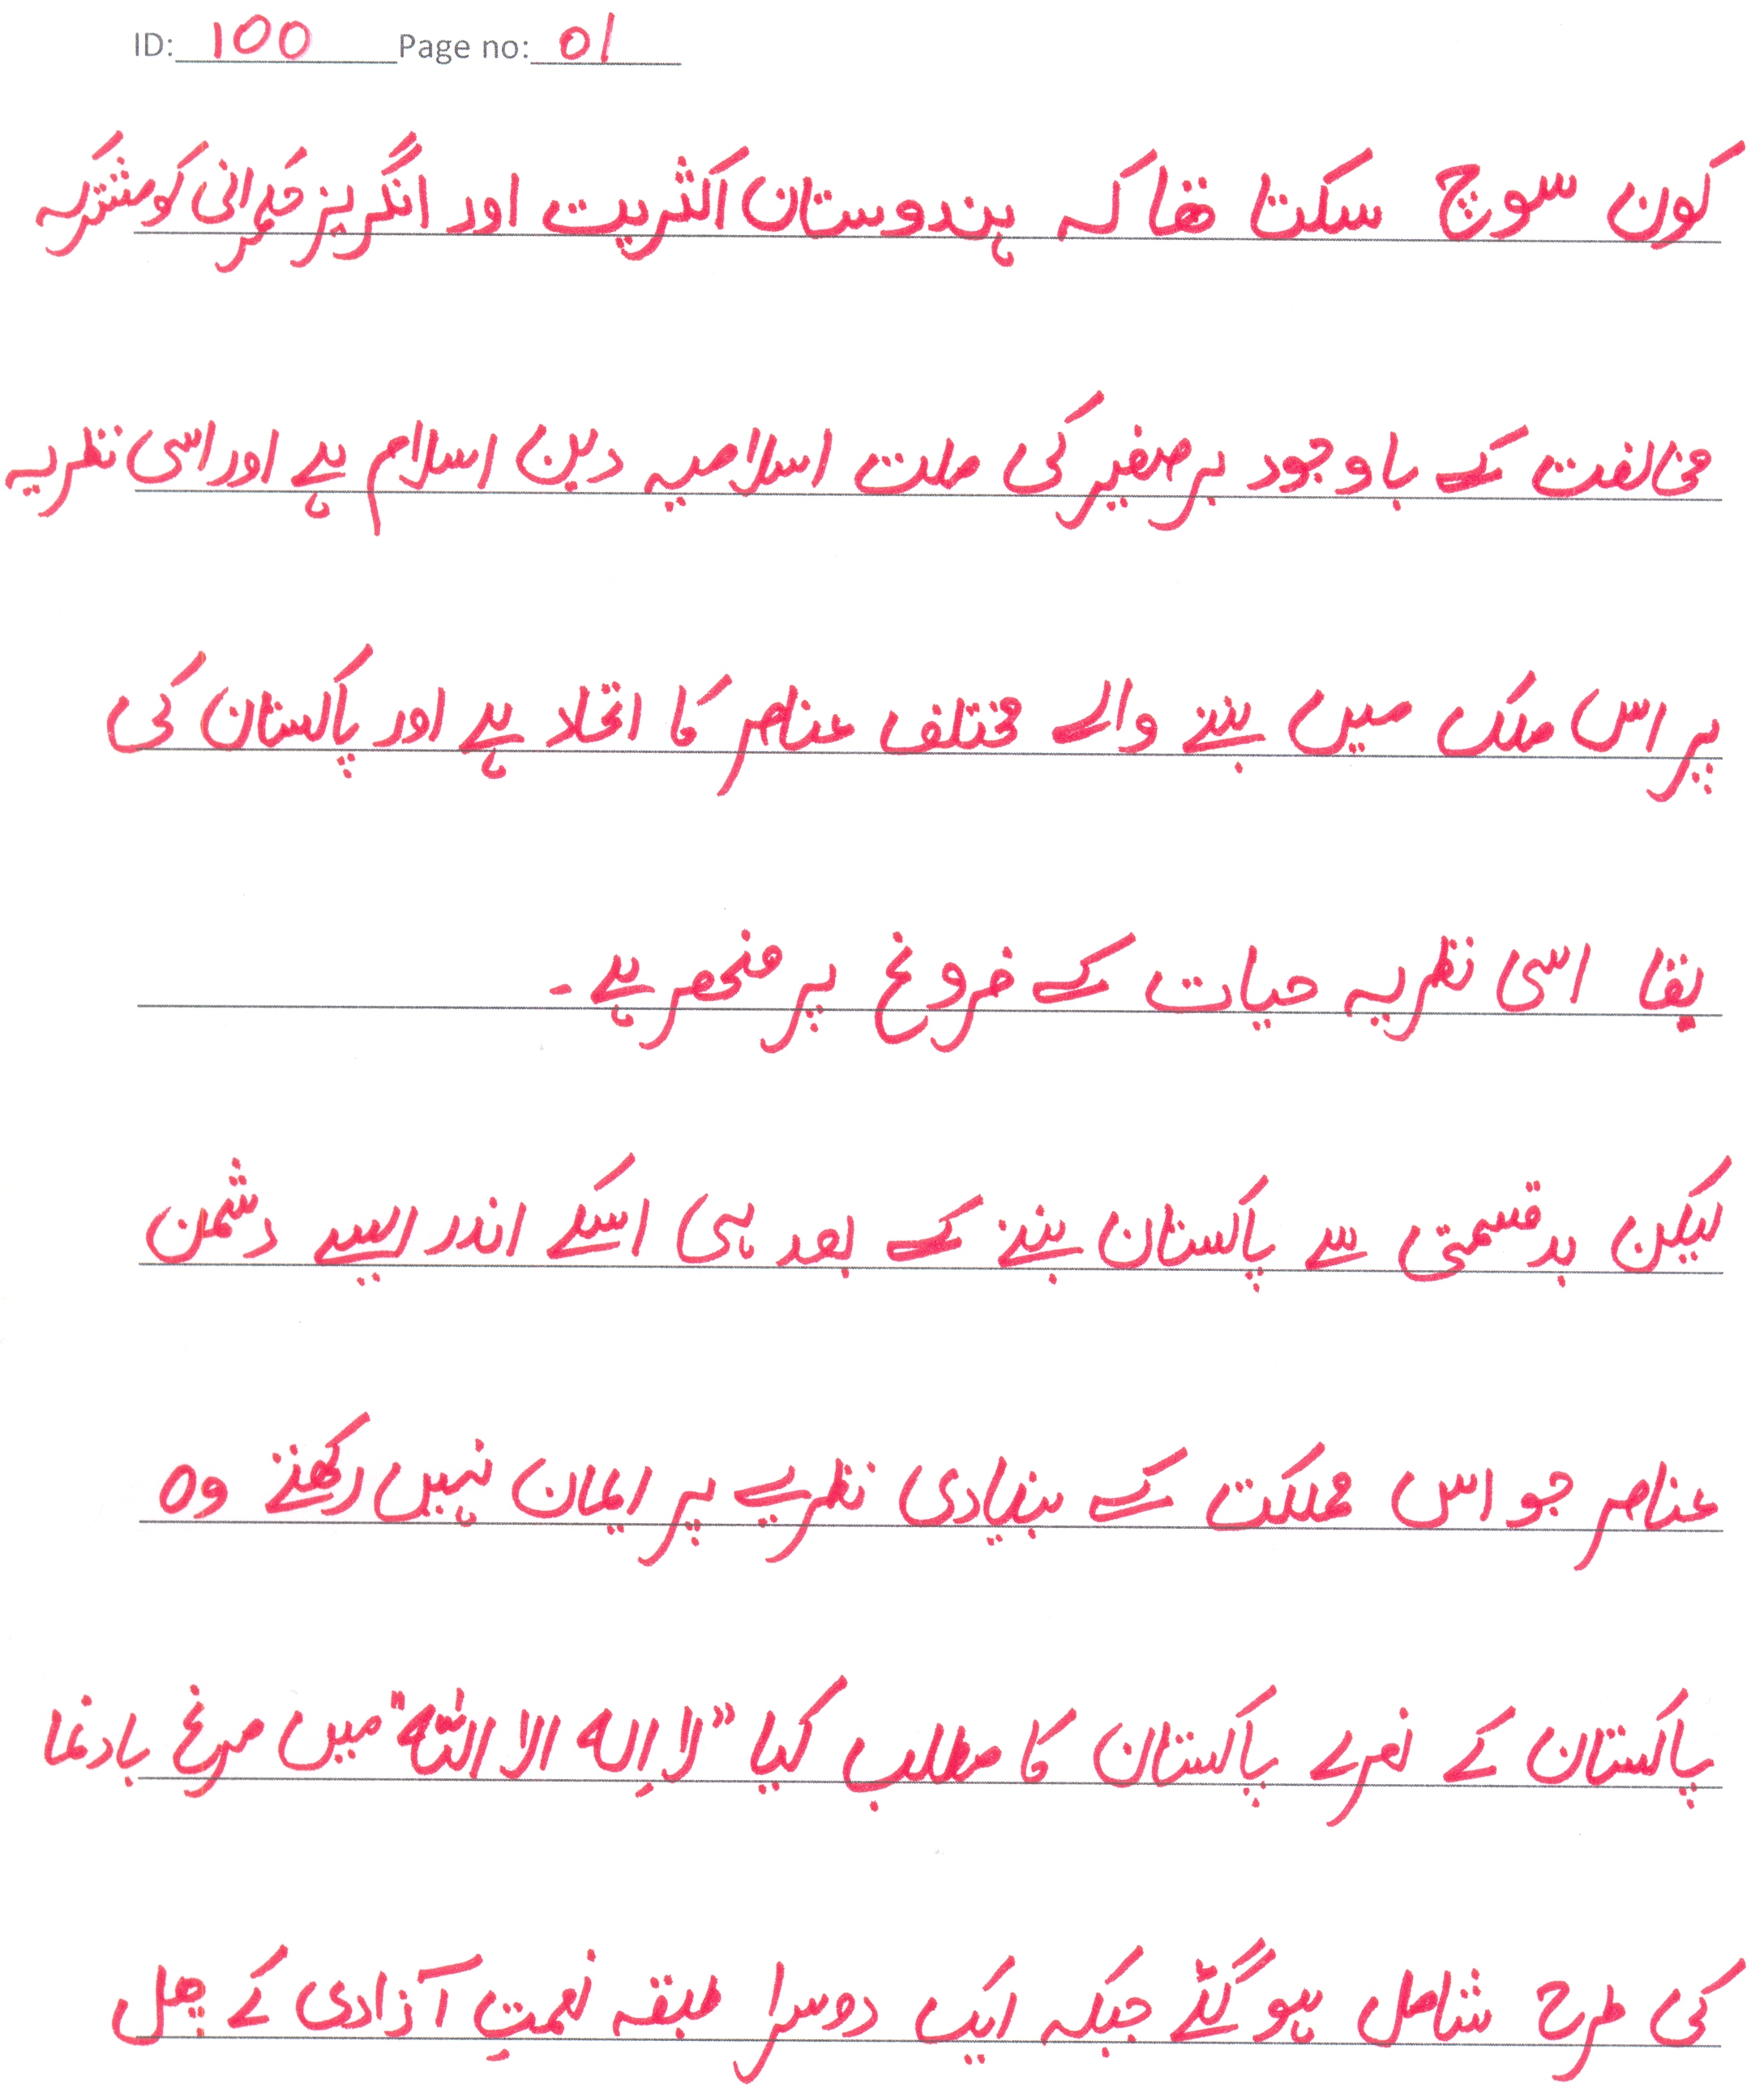 ID: 100 Page no: 01
کون سوچ سکتا تھا کہ ہندوستان اکثریت اور انگریز حکمرانی کو مشترکہ
مخالفت کے باوجود برصغیر کی ملت اسلامیہ دین اسلام ہے اور اسی نظریہ
پر اس ملک میں بننے والے مختلف عناصر کا اتحاد ہے اور پاکستان کی
بقا اسی نظریہ حیات کے فروغ پر منحصر ہے۔
لیکن بدقسمتی سے پاکستان بننے کے بعد ہی اسکے اندر ایسے دشمن
عناصر جو اس مملکت کے بنیادی نظریے پر ایمان نہیں رکھتے وہ
پاکستان کے نعرے پاکستان کا مطلب کیا "لا اِلہ الا اللہ" میں مرغ بادنما
کی طرح شامل ہو گئے جبکہ ایک دوسرا طبقہ نعمتِ آزادی کے پھل